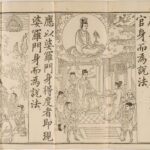 官身而為說法
應以婆羅門身得度者即現
婆羅門身而為說法